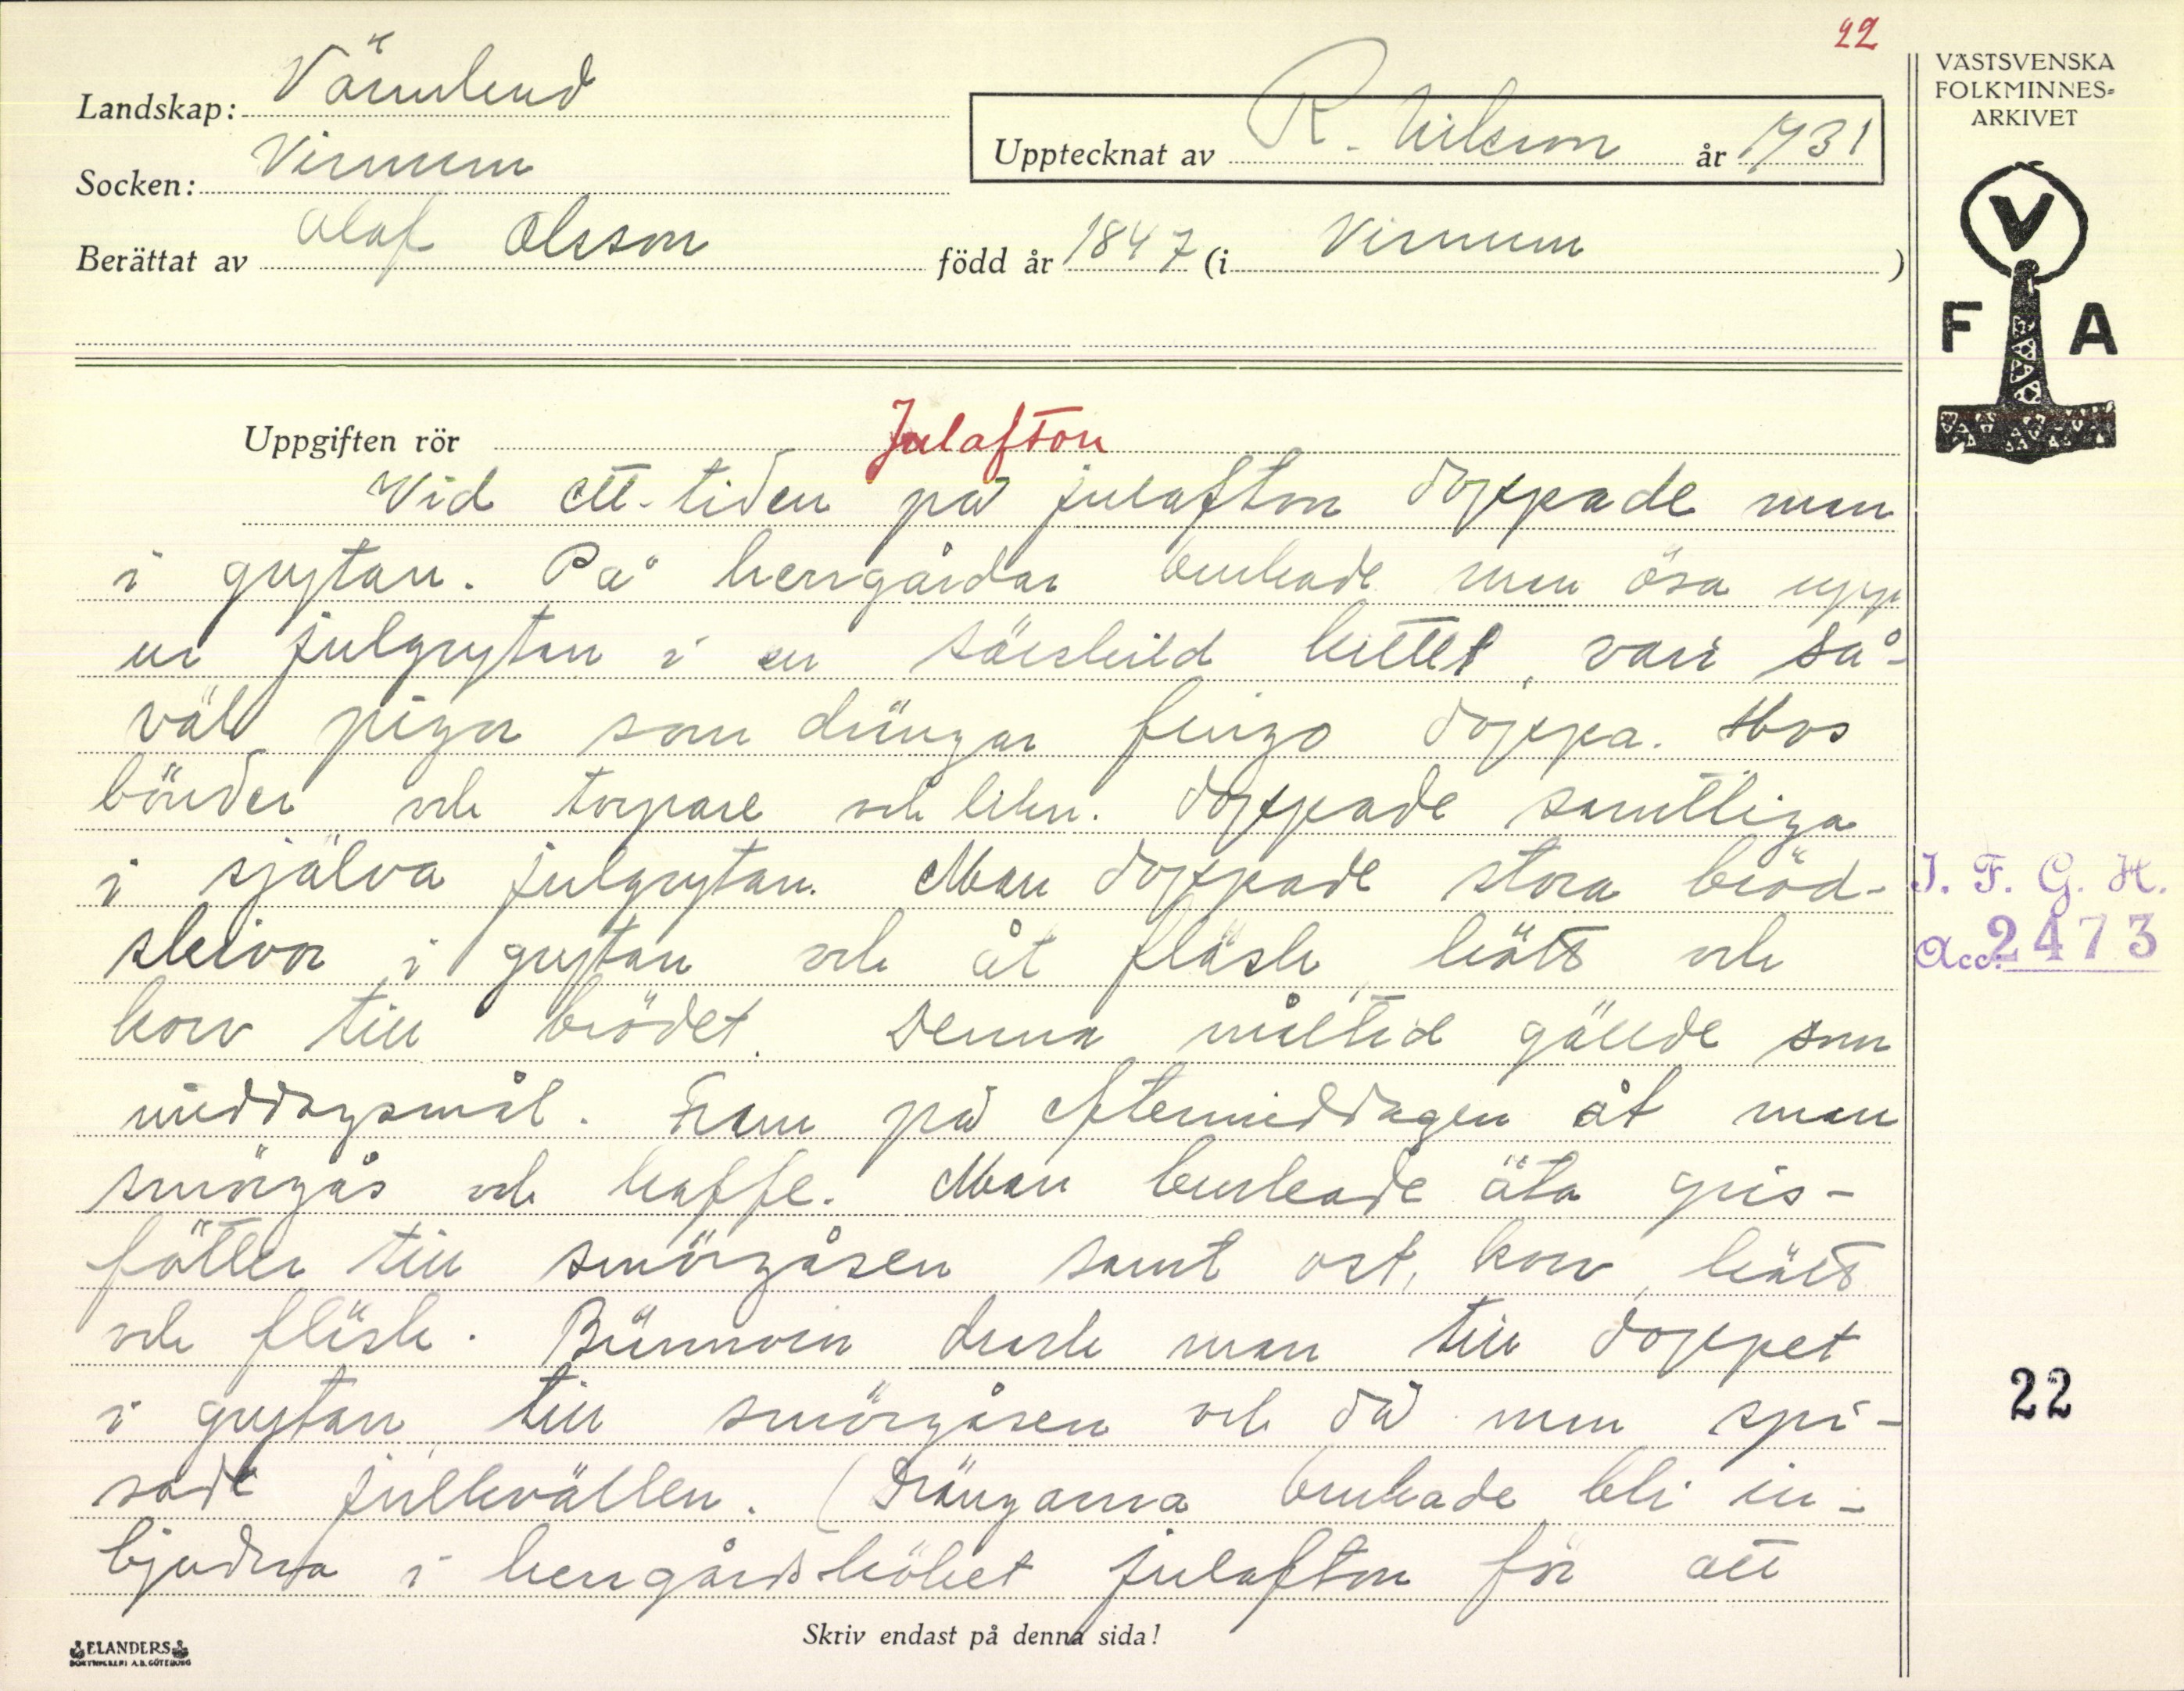 22
VÄSTSVENSKA
FOLKMINNES-
ARKIVET
Landskap: Värmland
Upptecknat av R. Nilsson år 1931
Socken: Visnum
Berättat av Olof Olsson född år 1847 (i Visnum)
V
F A
Uppgiften rör Julafton
Vid ett-tiden på julafton doppade man
i grytan. På herrgårdar brukade man ösa upp
ur julgrytan i en särskild kittel, vari så-
väl pigor som drängar fingo doppa. Hos
bönder och torpare och likn. doppade samtliga
i själva julgrytan. Man doppade stora bröd-
skivor i grytan och åt fläsk, kött och
korv till brödet. Denna måltid gällde som
middagsmål. Fram på eftermiddagen åt man
smörgås och kaffe. Man brukade äta gris-
fötter till smörgåsen samt ost, korv, kött
och fläsk. Brännvin drack man till doppet
i grytan, till smörgåsen och då man spi-
sade julkvällen. (Drängarna brukade bli in-
bjudna i herrgårdsköket julafton för att
I. F. G. H.
Acc. 2473
22
Skriv endast på denna sida!
ELANDERS
BOKTRYCKERI A.B. GÖTEBORG